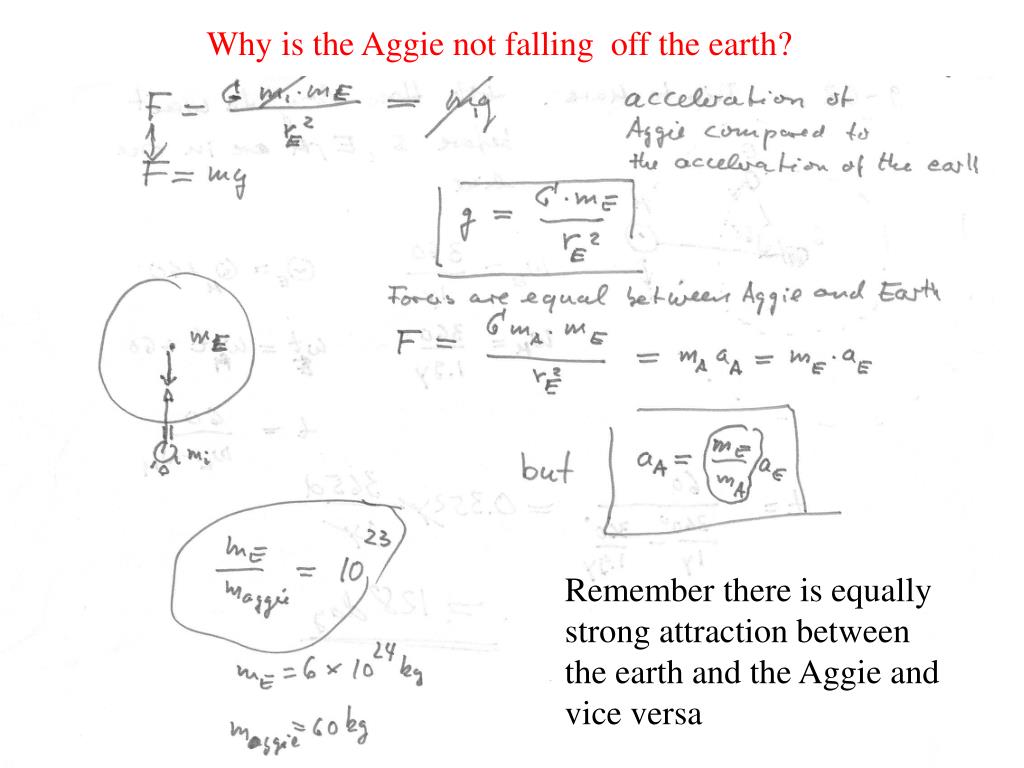 Why is the Aggie not falling off the earth?
F = G m_i · m_E / r_E² = m_i g
F = mg
acceleration of
Aggie compared to
the acceleration of the earth
g = G · m_E / r_E²
Forces are equal between Aggie and Earth
F = G m_A · m_E / r_E² = m_A a_A = m_E · a_E
m_E
m_i
but
a_A = (m_E / m_A) a_E
m_E / m_aggie = 10^23
m_E = 6 × 10^24 kg
m_aggie = 60 kg
Remember there is equally
strong attraction between
the earth and the Aggie and
vice versa